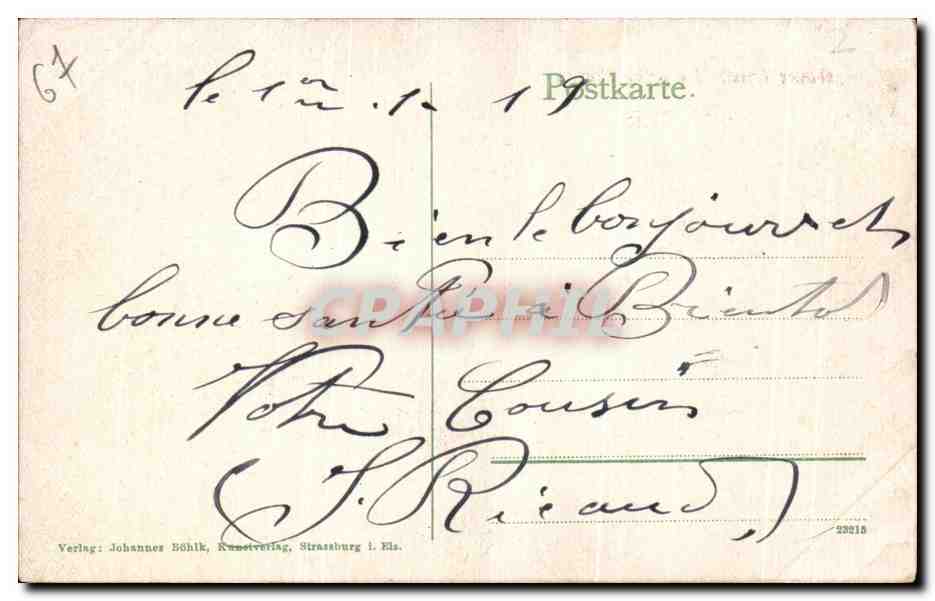 67
le 1er .1. 19
Postkarte.
Bien le bonjour et
bonne santé à Bientot
CPAPHIL
Votre Cousin
(J. Ricaud)
23215
Verlag: Johannes Böhlk, Kunstverlag, Strassburg i. Els.